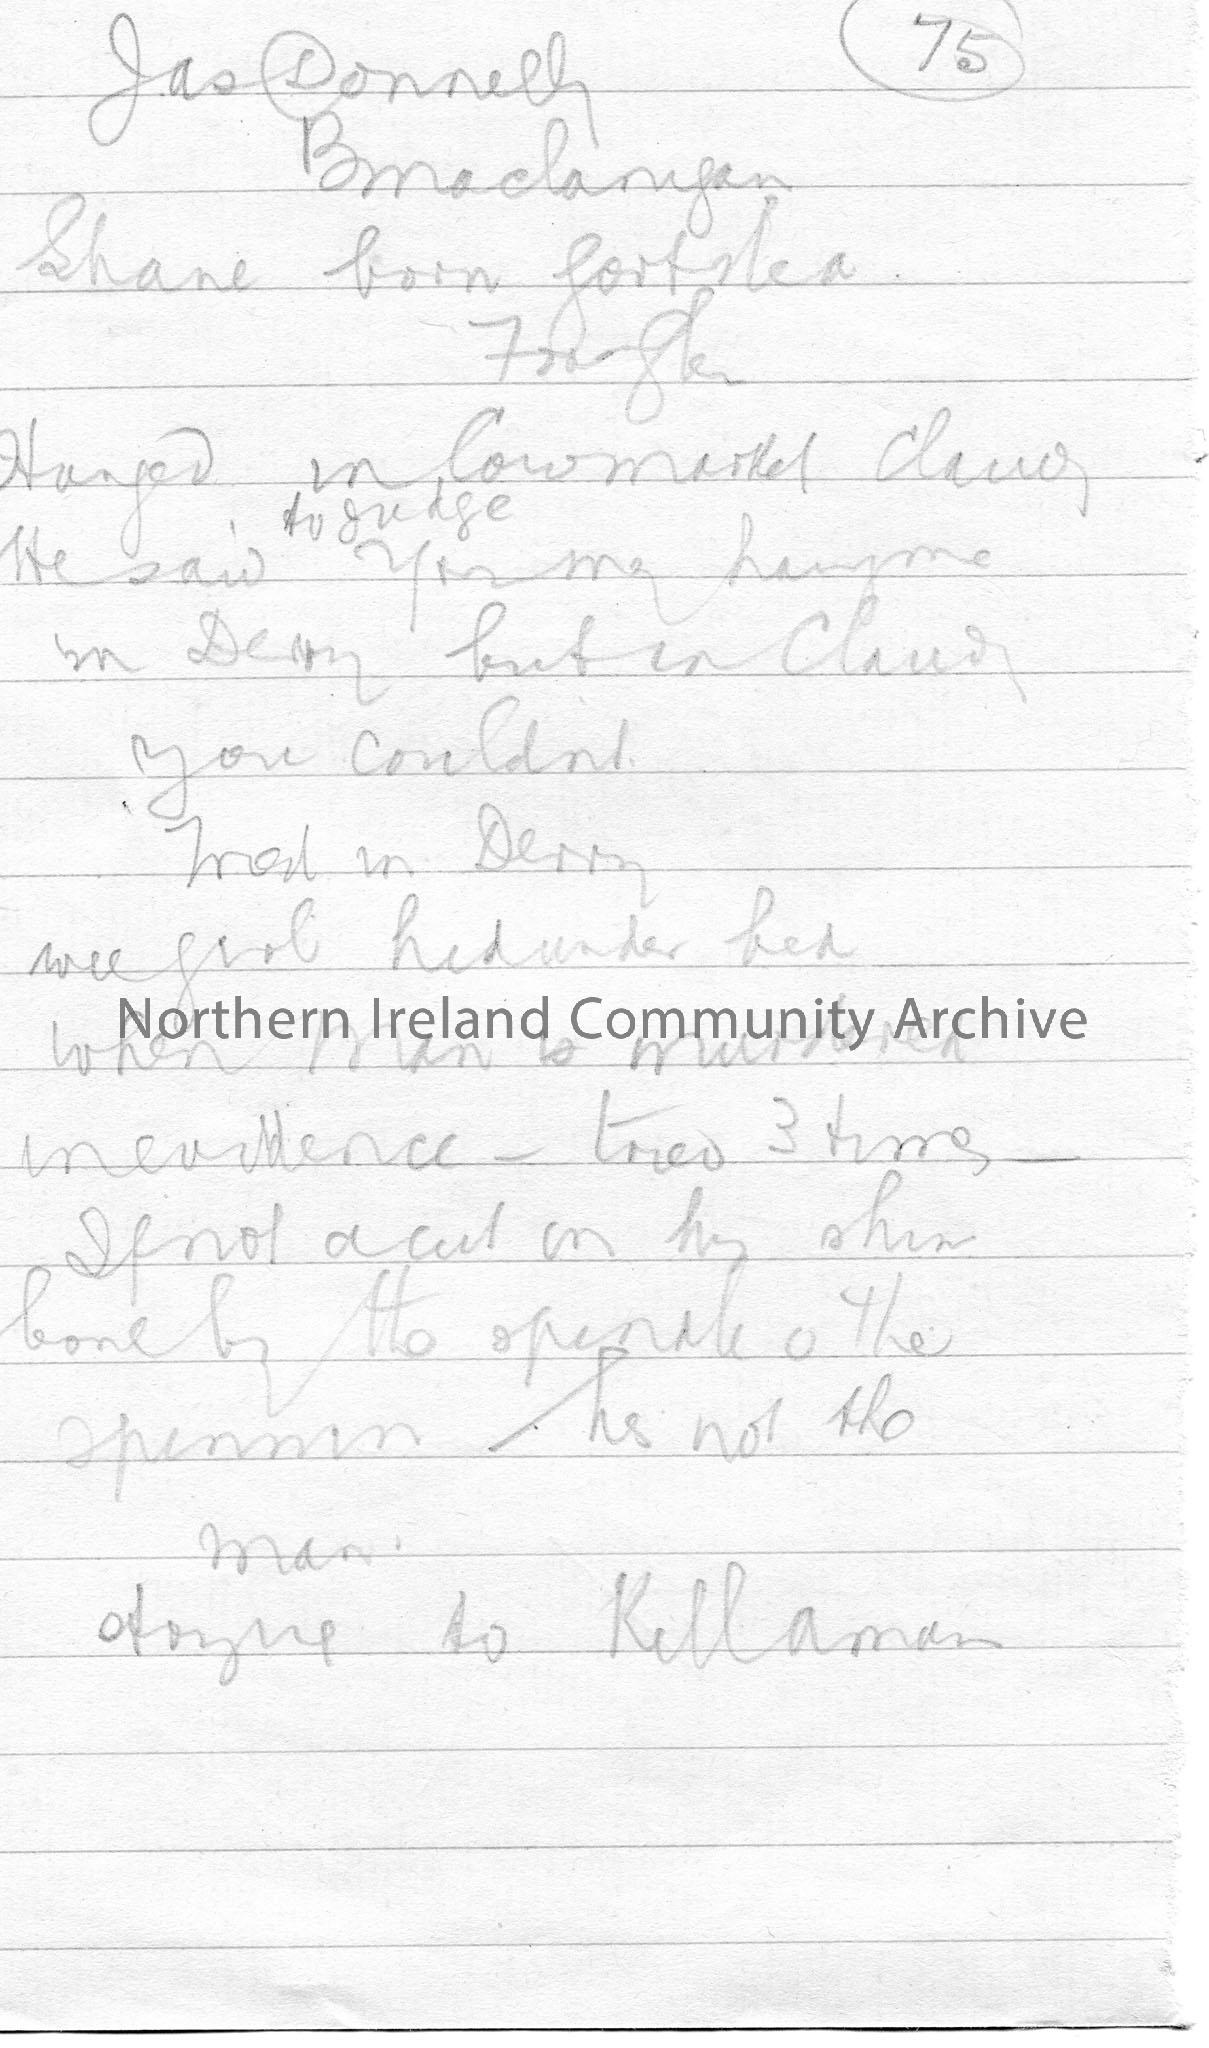 75
Jas Donnelly
Bmaclanigan
Shane born Gortilea
Hanged in Cowmarket Claudy
to judge
He said You may hang me
in Derry but in Claudy
you couldnt.
Tried in Derry
wee girl hid under bed
Northern Ireland Community Archive
when man is murdered
in evidence - tried 3 times -
If not a cut on his shin
bone by the spindle o the
spinnin - he's not the
man.
to Killaman